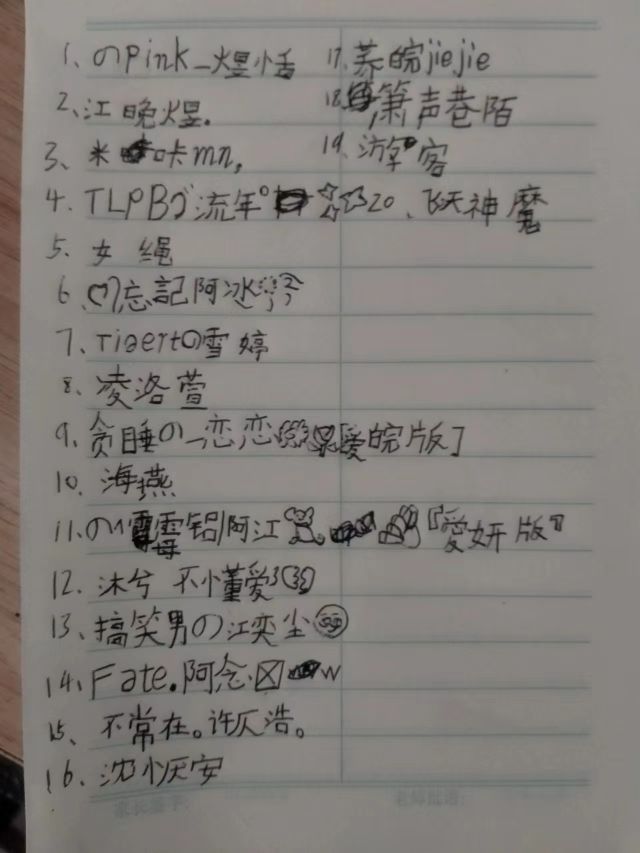 1、のpink_煜恬
2、江晚煜.
3、米咔mn,
4、TLPBゞ流年° ☆☆20、飞天神魔
5、女 绳
6、忘記阿冰
7、Tigertの雪婷
8、凌洛萱
9、贪睡の_恋恋 [爱皖版]
10、海燕
11、の小霉铝阿江 『愛妍版』
12、沐兮 不懂爱
13、搞笑男の江奕尘
14、Fate.阿念 w
15、不常在。许仄浩。
16、沈小天安
17、养皖jiejie
18、箫声巷陌
19、游客